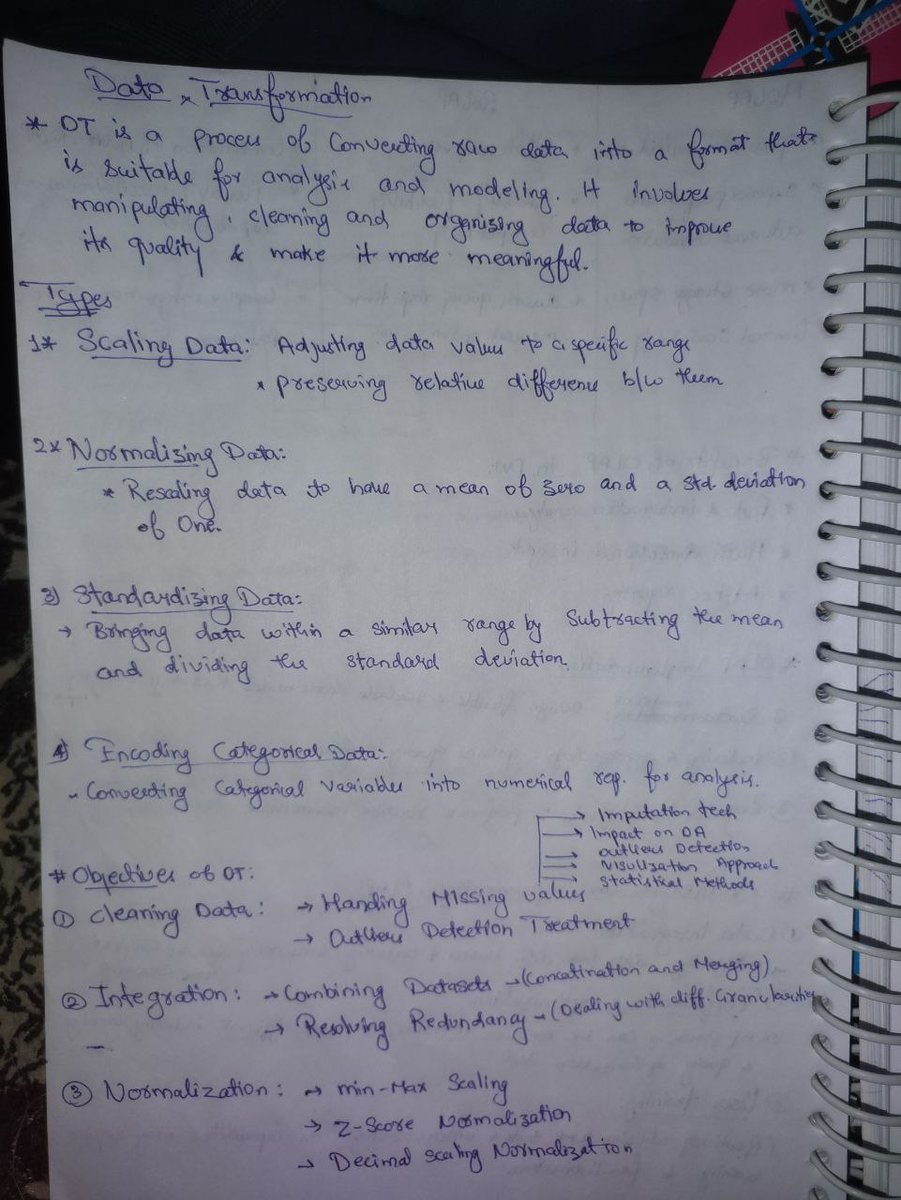 Data Transformation
* DT is a process of Converting raw data into a format that
is suitable for analysis and modeling. It involves
manipulating, cleaning and organizing data to improve
its quality & make it more meaningful.
Types
1* Scaling Data: Adjusting data values to a specific range
* preserving relative difference b/w them
2* Normalizing Data:
* Rescaling data to have a mean of zero and a std deviation
of One.
3) Standardizing Data:
→ Bringing data within a similar range by Subtracting the mean
and dividing the standard deviation.
4) Encoding Categorical Data:
- Converting Categorical variables into numerical rep. for analysis.
→ Imputation tech
→ Impact on DA
→ outliers Detection
→ Visulization Approach
→ Statistical Methods
# Objectives of DT:
① Cleaning Data: → Handing Missing values
→ Outliers Detection Treatment
② Integration: → Combining Datasets → (Concatination and Merging)
→ Resolving Redundancy - (Dealing with diff. Granularities
③ Normalization: → min-Max Scaling
→ Z-Score Normalization
→ Decimal scaling Normalization